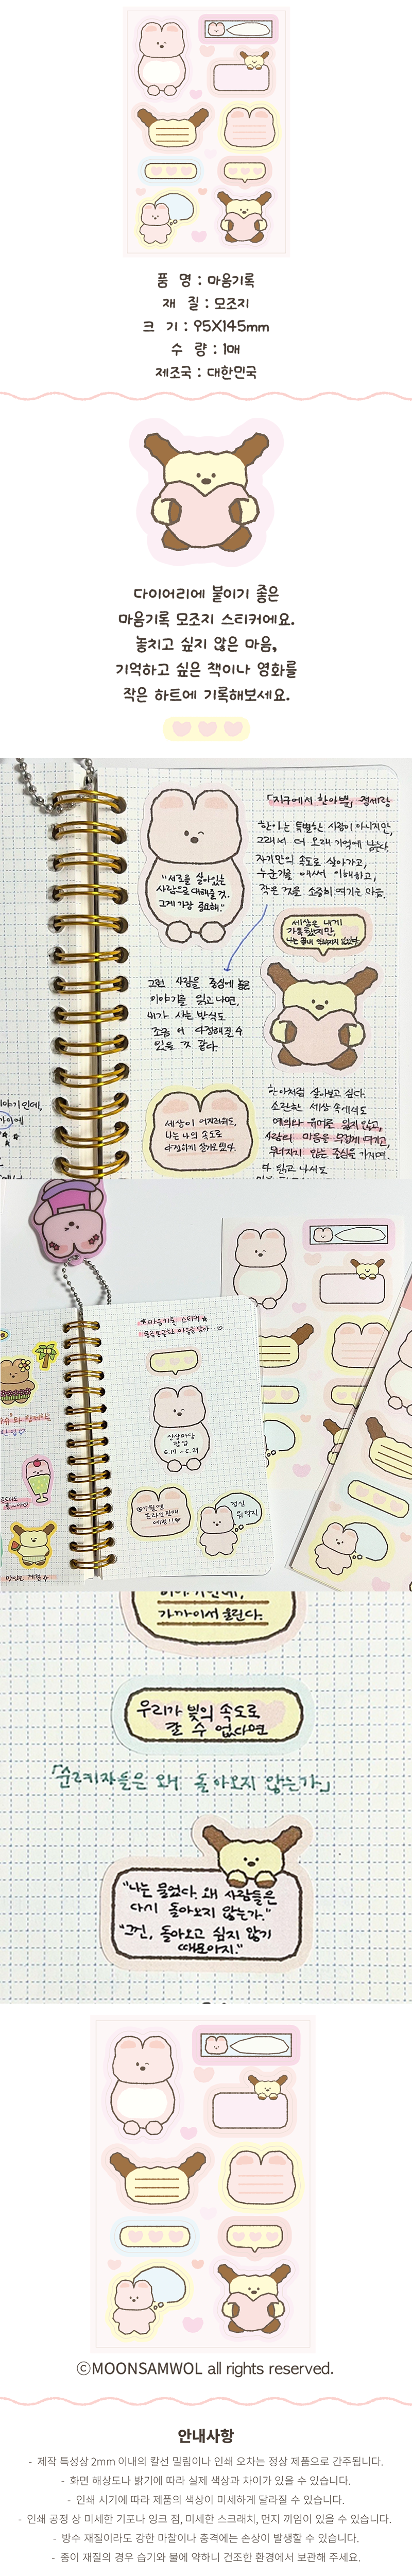 품 명 : 마음기록
재 질 : 모조지
크 기 : 95X145mm
수 량 : 1매
제조국 : 대한민국
다이어리에 붙이기 좋은
마음기록 모조지 스티커에요.
놓치고 싶지 않은 마음,
기억하고 싶은 책이나 영화를
작은 하트에 기록해보세요.
「지구에서 한아뿐」 정세랑
한아는 특별한 사람이 아니지만,
그래서 더 오래 기억에 남는다.
자기만의 속도로 살아가고,
누군가를 애써 이해하고,
작은 것을 소중히 여기는 마음.
"서로를 살아있는
사람으로 대해줄 것.
그게 가장 중요해."
세상은 내게
가혹했지만,
나는 끝내 악해지지 않았다
그런 사람을 중심에 놓은
이야기를 읽고 나면,
내가 사는 방식도
조금 더 다정해질 수
있을 것 같다.
세상이 어지러워도,
나는 나의 속도로
다정하게 살기로 했다.
한아처럼 살아보고 싶다.
소란한 세상 속에서도
예의와 유머를 잃지 않고,
사람의 마음을 무겁게 여기고,
무너지지 않는 중심을 가지며.
다 읽고 나서도
마음기록 스티커
상상마당
팝업
6.17 ~ 6.29
7월엔
예정!!
점심
뭐먹지
이야기인데,
가까이서 울린다.
우리가 빛의 속도로
갈 수 없다면
「순례자들은 왜 돌아오지 않는가」
"나는 물었다. 왜 사람들은
다시 돌아오지 않는가."
"그건, 돌아오고 싶지 않기
때문이지."
ⓒMOONSAMWOL all rights reserved.
안내사항
- 제작 특성상 2mm 이내의 칼선 밀림이나 인쇄 오차는 정상 제품으로 간주됩니다.
- 화면 해상도나 밝기에 따라 실제 색상과 차이가 있을 수 있습니다.
- 인쇄 시기에 따라 제품의 색상이 미세하게 달라질 수 있습니다.
- 인쇄 공정 상 미세한 기포나 잉크 점, 미세한 스크래치, 먼지 끼임이 있을 수 있습니다.
- 방수 재질이라도 강한 마찰이나 충격에는 손상이 발생할 수 있습니다.
- 종이 재질의 경우 습기와 물에 약하니 건조한 환경에서 보관해 주세요.